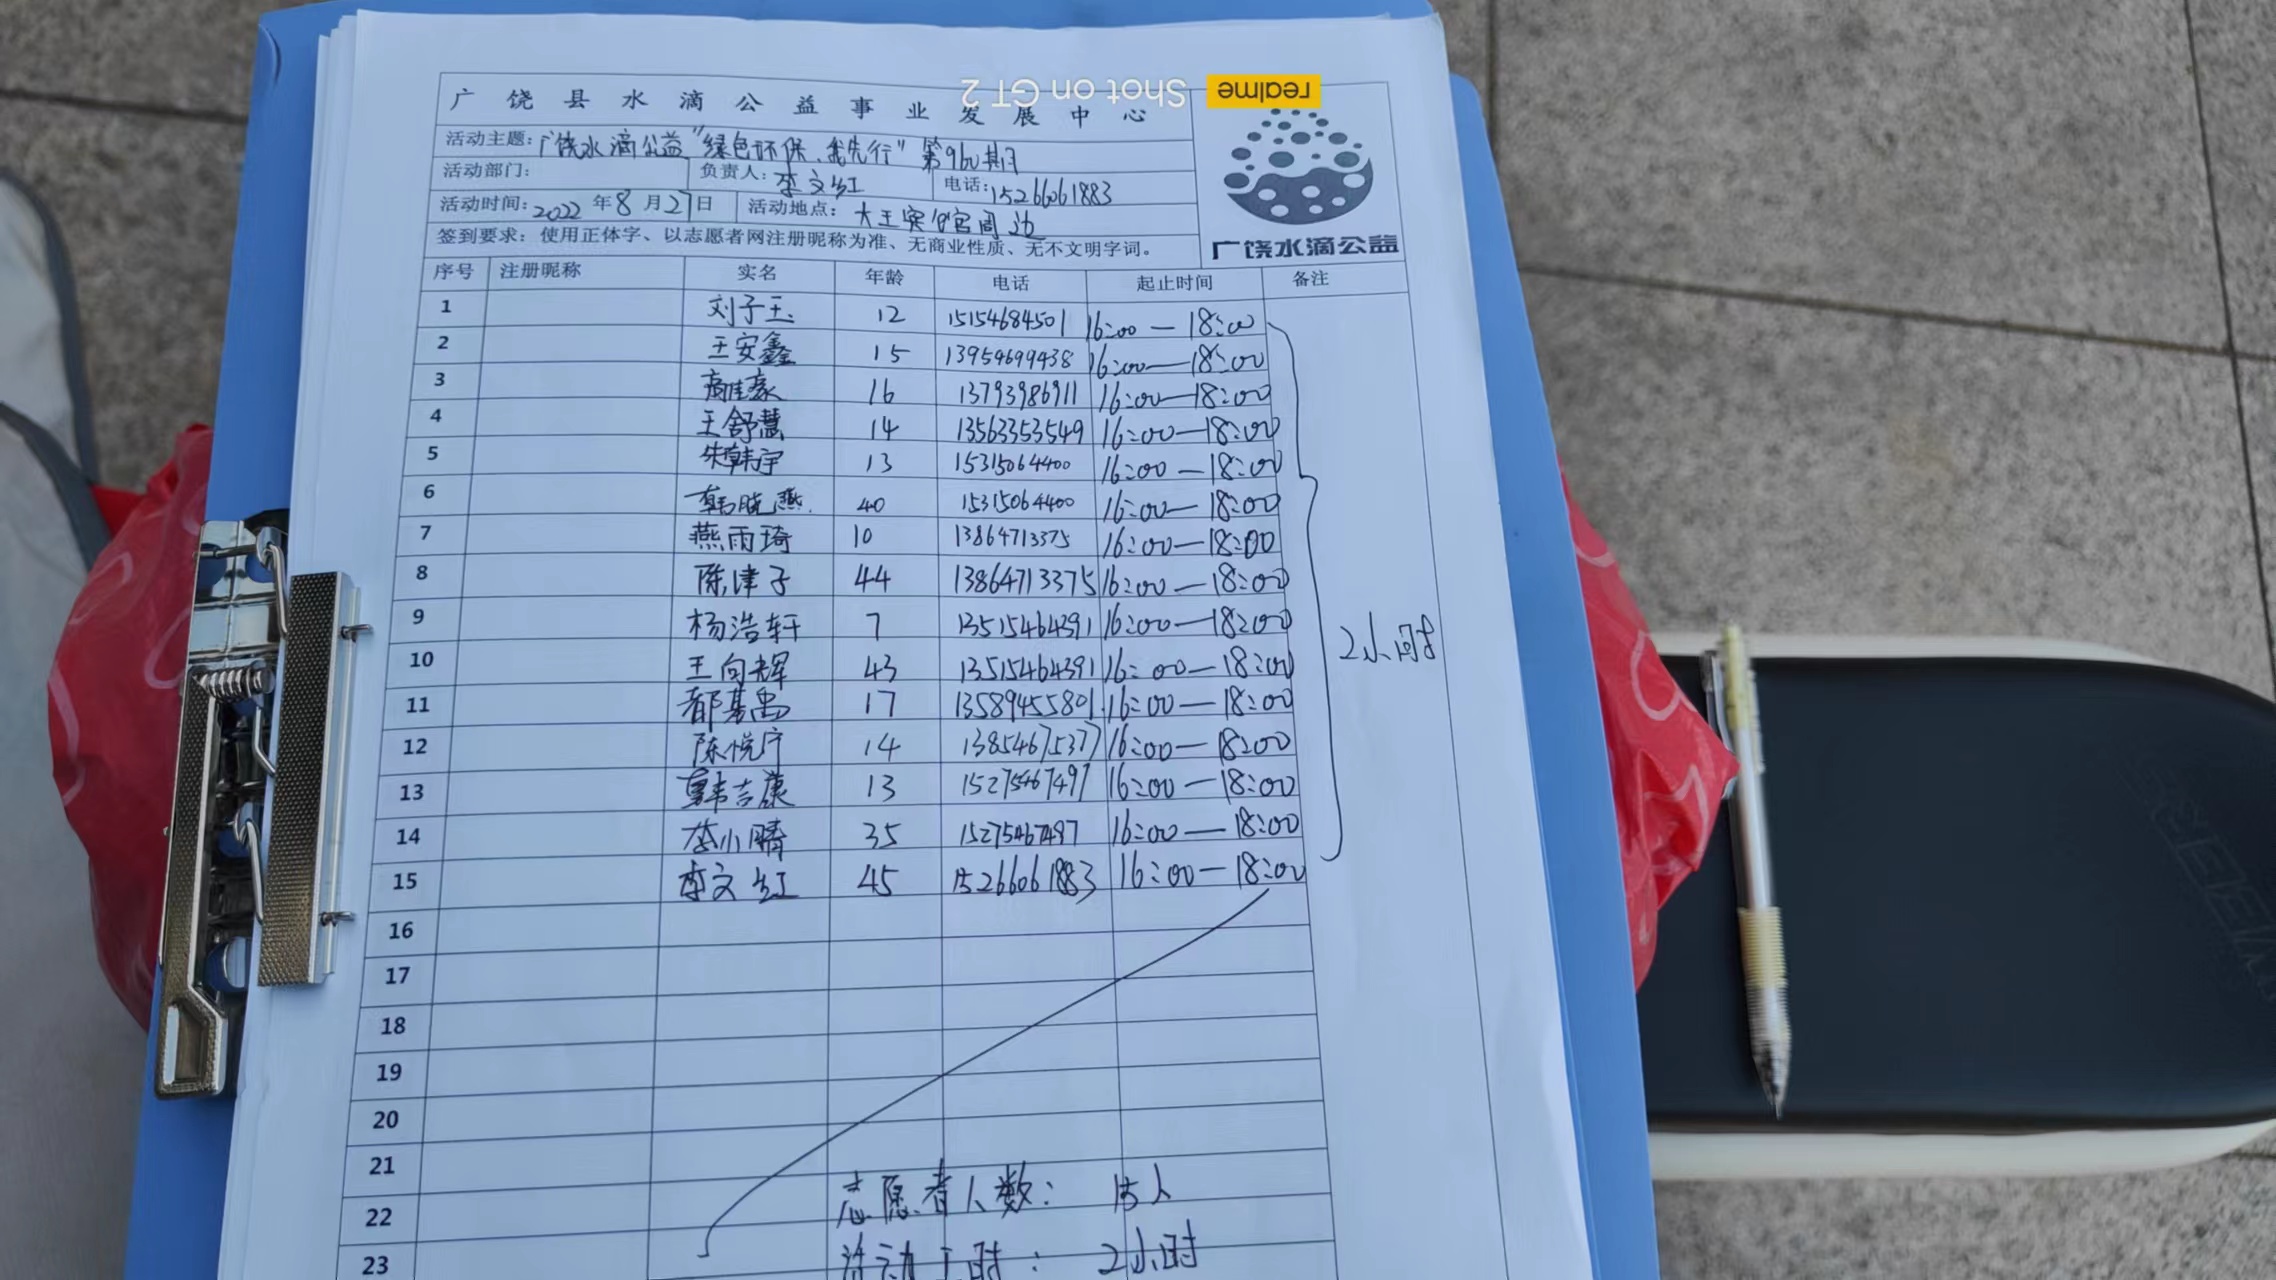 广饶县水滴公益事业发展中心
Shot on GT 2 realme
活动主题：广饶水滴公益"绿色环保、我先行"第960期
活动部门： 负责人：李文红 电话：15266061883
活动时间：2022年8月27日 活动地点：大王 周边
签到要求：使用正体字、以志愿者网注册昵称为准、无商业性质、无不文明字词。
广饶水滴公益
序号 注册昵称 实名 年龄 电话 起止时间 备注
1 刘子玉 12 15154684501 16:00—18:00
2 王安鑫 15 13954699438 16:00—18:00
3 商佳豪 16 13793986911 16:00—18:00
4 王舒慧 14 13563353549 16:00—18:00
5 朱韩宇 13 15315064400 16:00—18:00
6 韩晓燕 40 15315064400 16:00—18:00
7 燕雨琦 10 13864713375 16:00—18:00
8 陈津子 44 13864713375 16:00—18:00
9 杨浩轩 7 13515464391 16:00—18:00
2小时
10 王向辉 43 13515464391 16:00—18:00
11 17 13589455801 16:00—18:00
12 陈悦宁 14 13854675377 16:00—18:00
13 韩吉康 13 15275467497 16:00—18:00
14 李小晴 35 15275467497 16:00—18:00
15 李文红 45 15266061883 16:00—18:00
16
17
18
19
20
21
22 志愿者人数：15人
23 活动工时：2小时